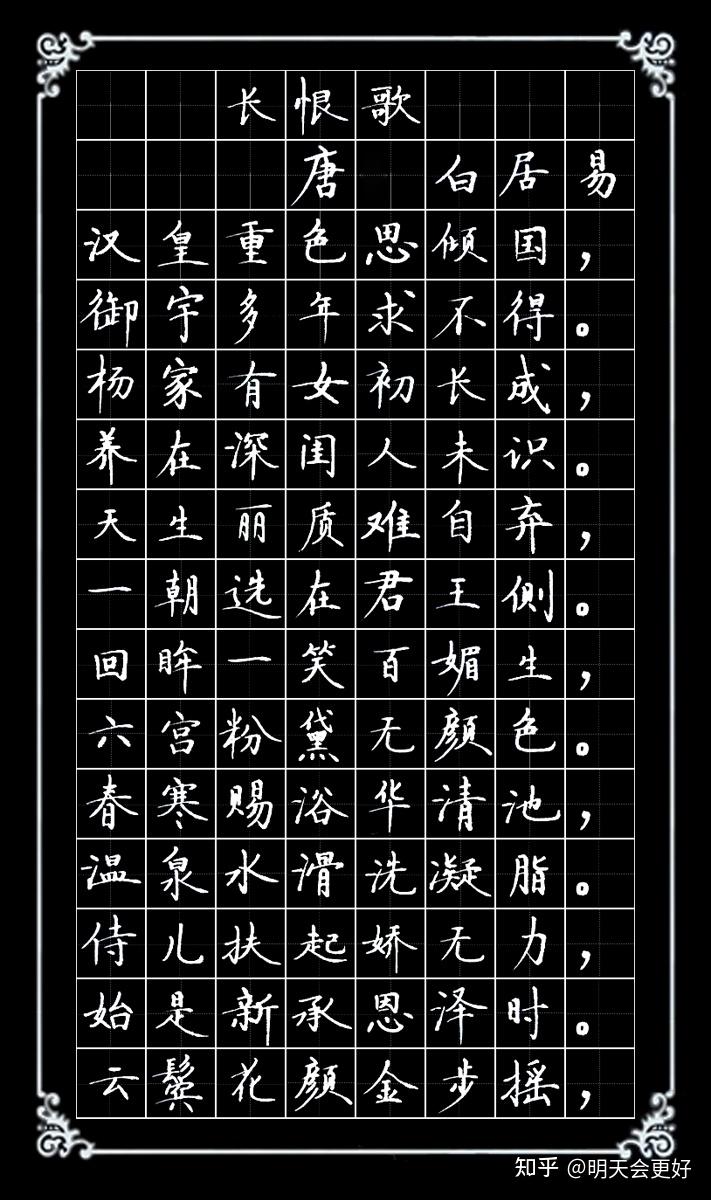 长恨歌
唐 白居易
汉皇重色思倾国，
御宇多年求不得。
杨家有女初长成，
养在深闺人未识。
天生丽质难自弃，
一朝选在君王侧。
回眸一笑百媚生，
六宫粉黛无颜色。
春寒赐浴华清池，
温泉水滑洗凝脂。
侍儿扶起娇无力，
始是新承恩泽时。
云鬓花颜金步摇，
知乎 @明天会更好